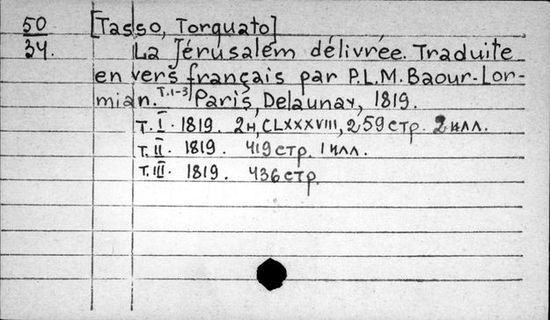 50 [Tasso, Torquato]
34. La Jérusalem délivrée. Traduite
en vers français par P.L.M. Baour-Lor-
mian. Т.1-3 Paris, Delaunay, 1819.
Т.I. 1819. 2н, CLXXXVIII, 259 стр. 2 илл.
Т.II. 1819. 419 стр. 1 илл.
Т.III. 1819. 436 стр.